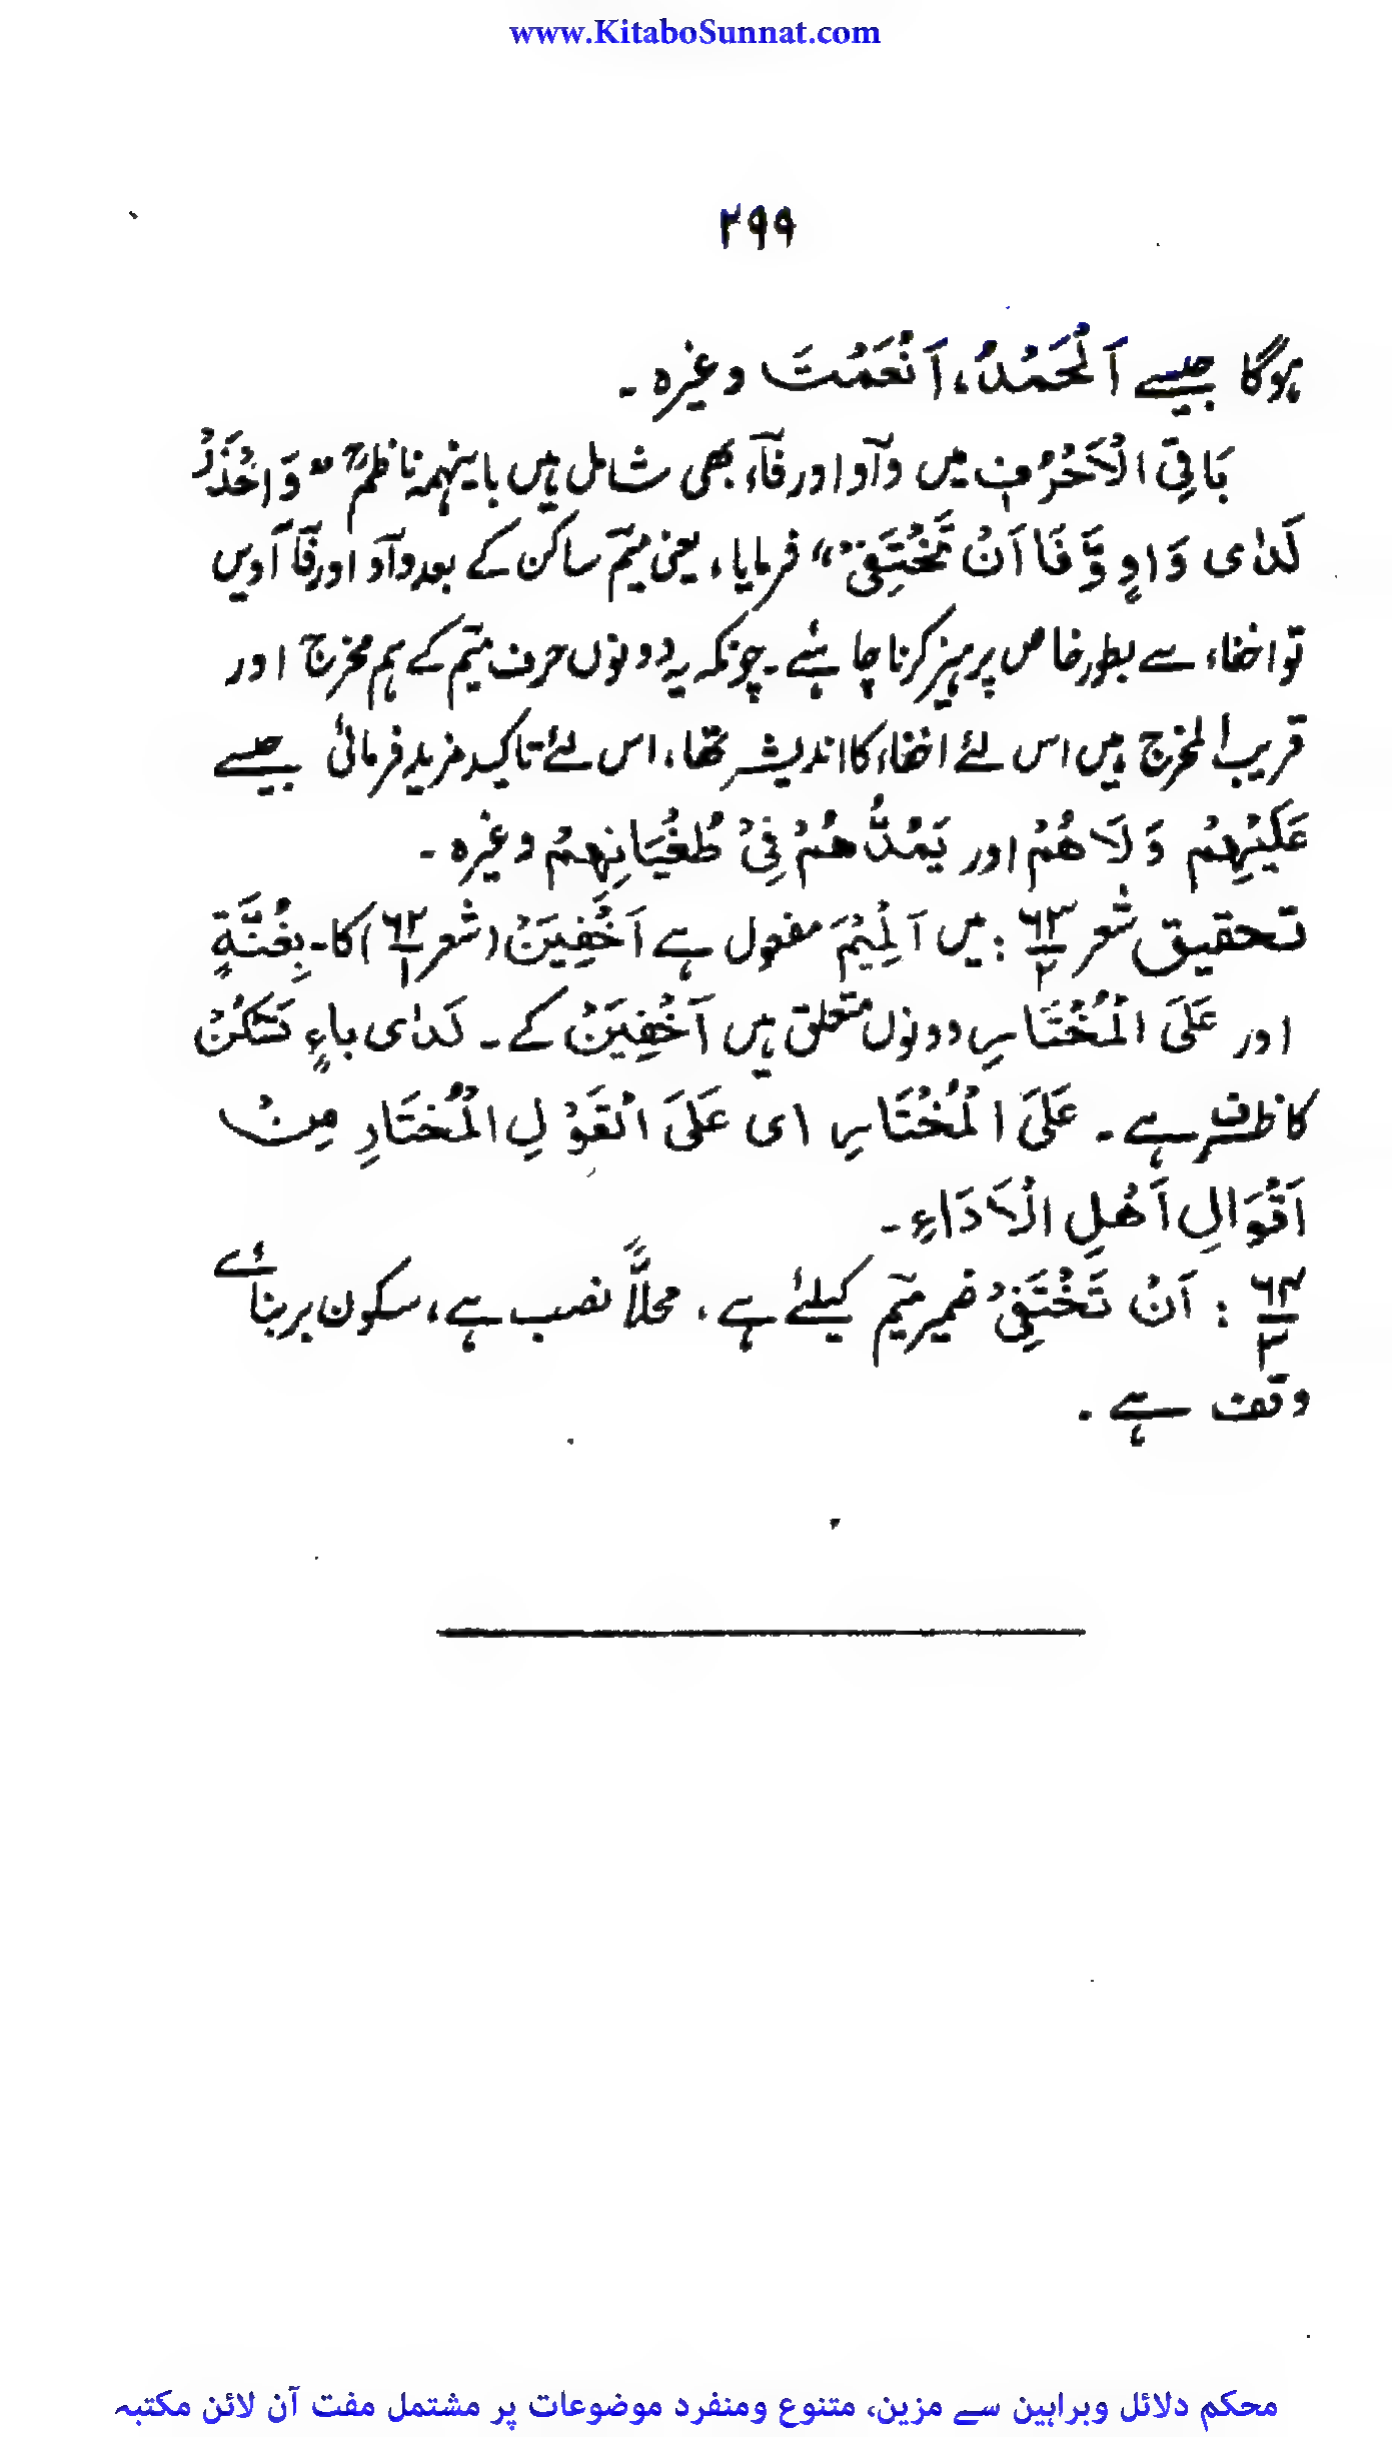 www.KitaboSunnat.com
۲۹۹
ہوگا جیسے اَلْحَمْدُ، اَنْعَمْتَ وغیرہ ۔
بَاقِی الْاَحْرُفِ میں وآو اور فآء بھی شامل ہیں باینہمہ ناظمؒ "وَاحْذَرْ
لَدٰی وَاوٍ وَّفَا اَنْ تَخْتَفِیْ" فرمایا، یعنی میٓم ساکن کے بعد وآو اور فآ آویں
تو اخفاء سے بطور خاص پرہیز کرنا چاہئے ۔ چونکہ یہ دونوں حرف میٓم کے ہم مخرج اور
قریب المخرج ہیں اس لئے اخفاء کا اندیشہ تھا، اس لئے تاکید مزید فرمائی جیسے
عَلَیْہِمْ وَلَاھُمْ اور یَمُدُّھُمْ فِیْ طُغْیَانِہِمْ وغیرہ ۔
تحقیق شعر ۶۳/۲ : میں اَلْمِیْمَ مفعول ہے اَخْفِیَنْ (شعر ۶۲/۱) کا ۔ بِغُنَّۃٍ
اور عَلَی الْمُخْتَارِ دونوں متعلق ہیں اَخْفِیَنْ کے ۔ لَدٰی باءٍ تَسْکُنْ
کا ظرف ہے ۔ عَلَی الْمُخْتَارِ ای عَلَی الْقَوْلِ الْمُخْتَارِ مِنْ
اَقْوَالِ اَھْلِ الْاَدَاءِ ۔
۶۴/۲ : اَنْ تَخْتَفِیْ ضمیر میٓم کیلئے ہے ۔ محلاًّ نصب ہے، سکون بر بنائے
وقف ہے ۔
محکم دلائل وبراہین سے مزین، متنوع ومنفرد موضوعات پر مشتمل مفت آن لائن مکتبہ